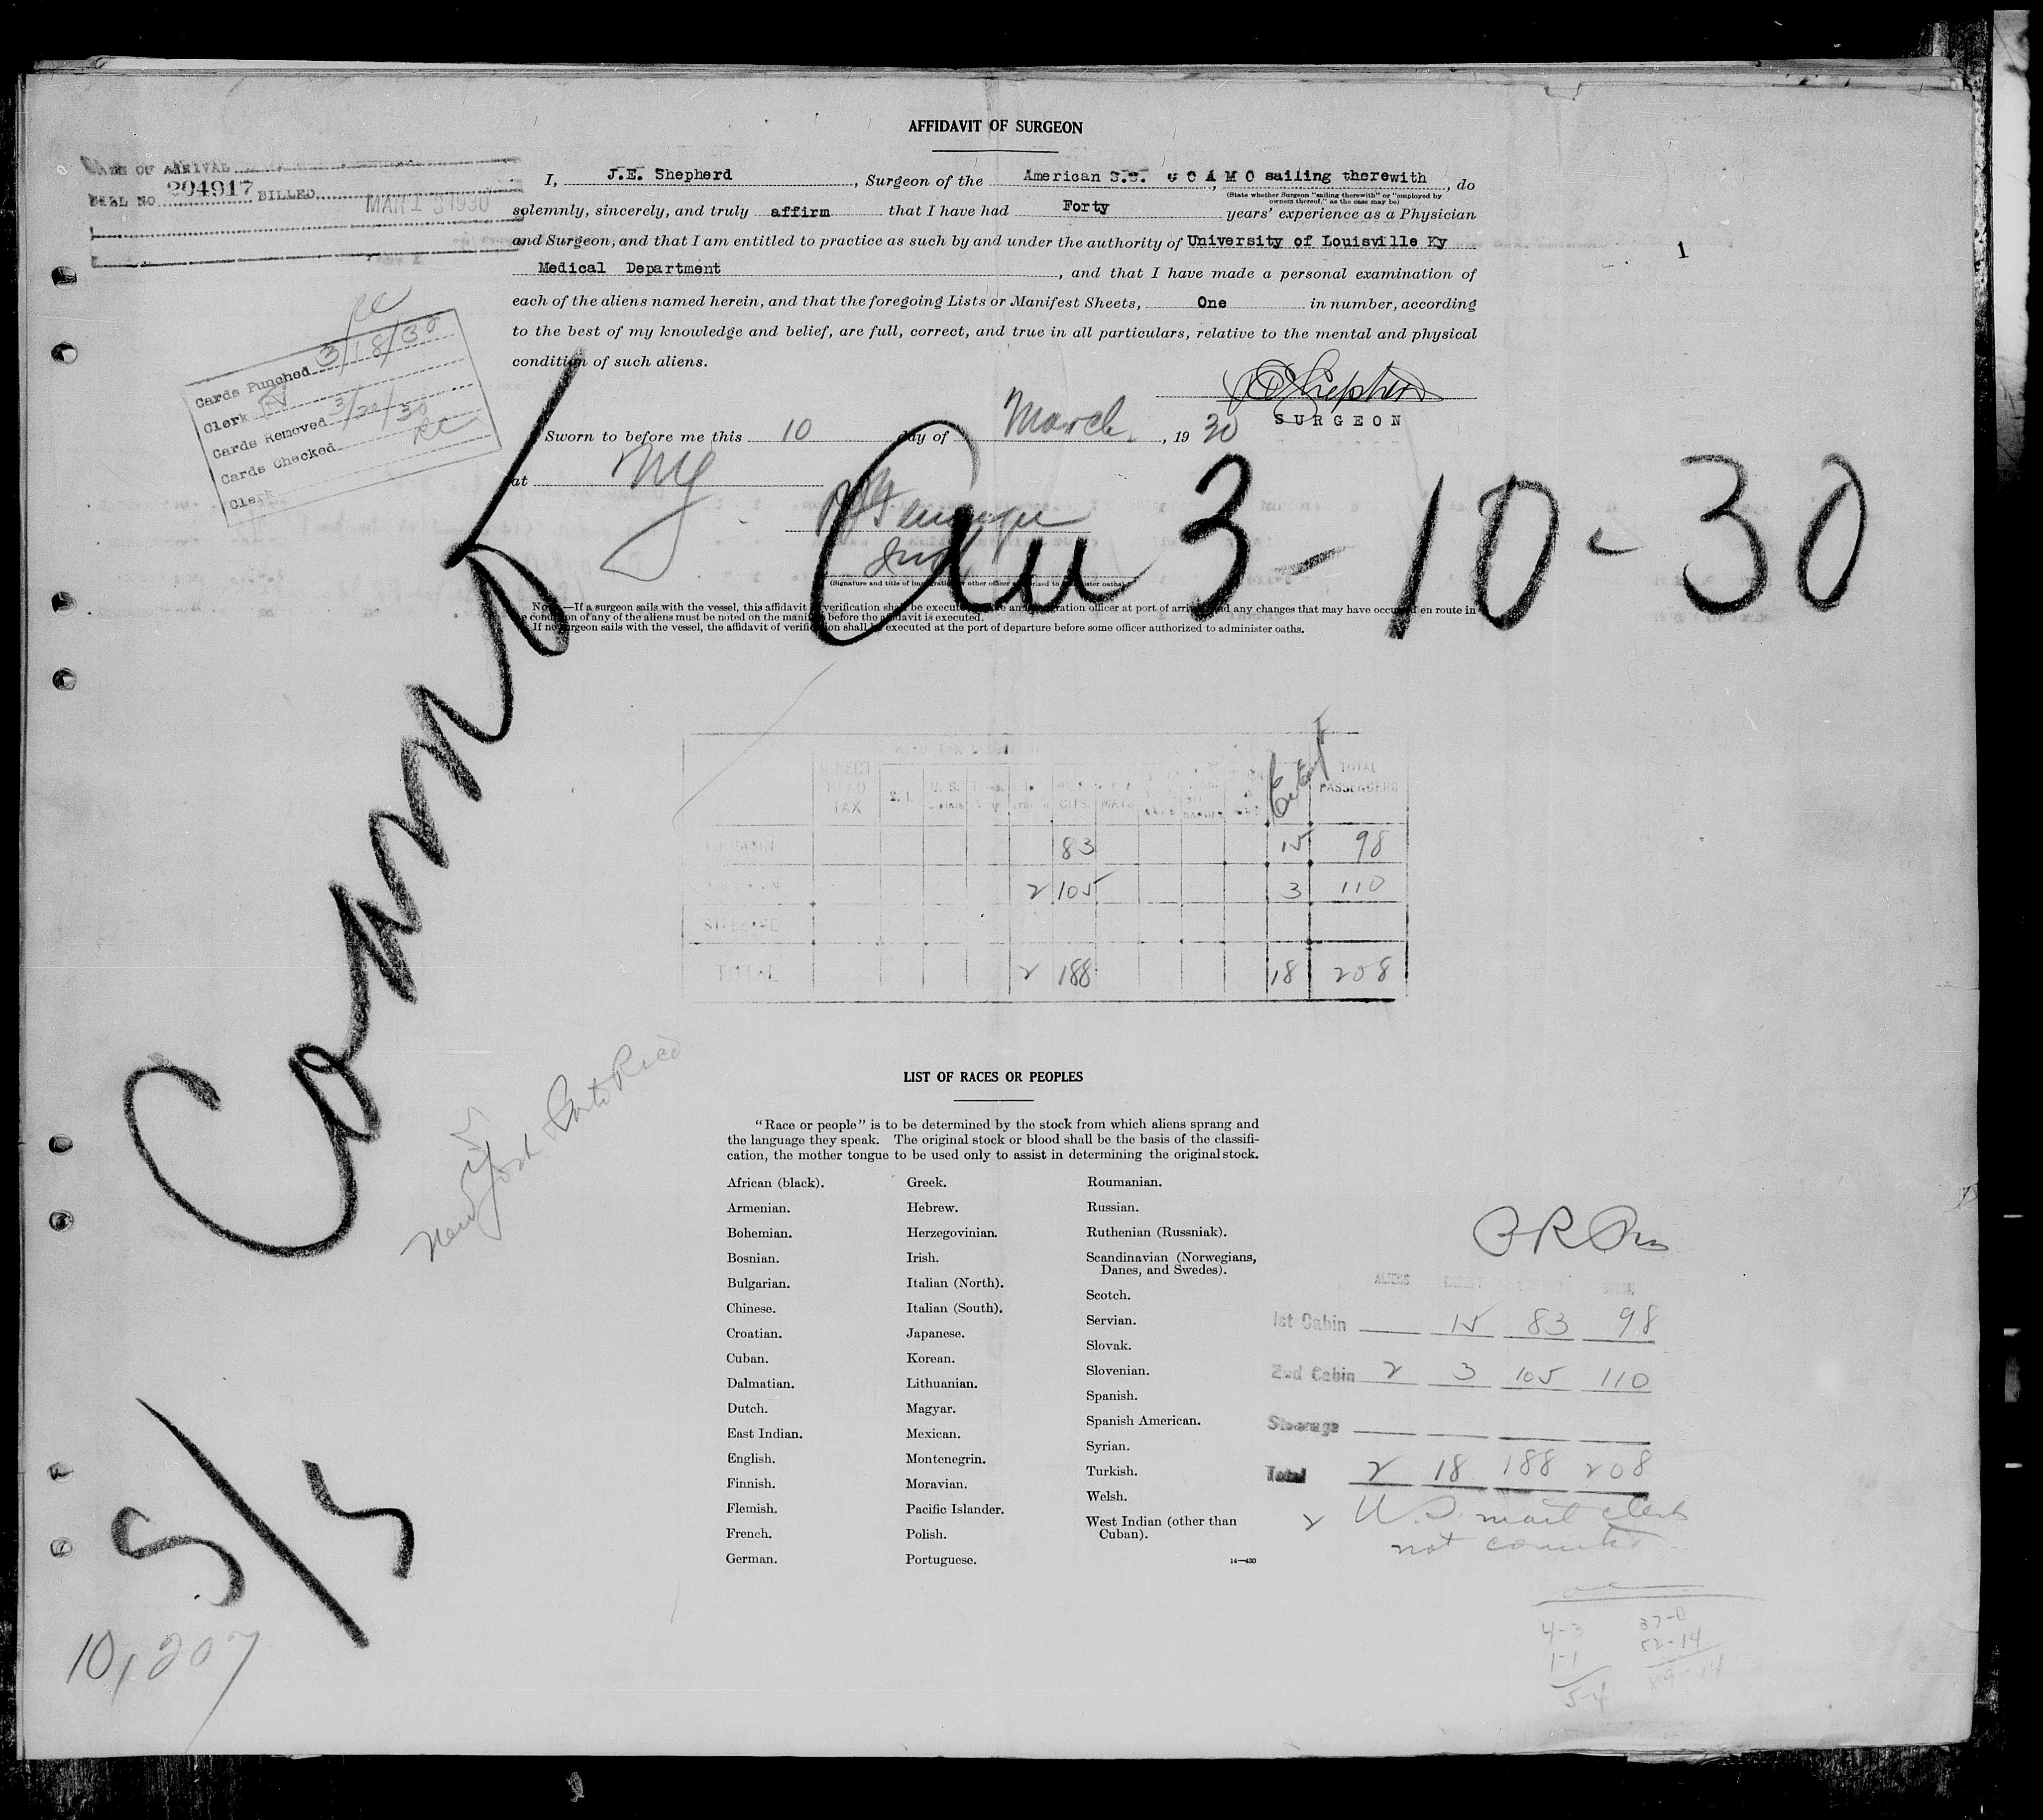 AFFIDAVIT OF SURGEON
OF ARRIVAL
BILL NO 204917 BILLED MAR 1 1930
I, J.E. Shepherd, Surgeon of the American S.S. COAMO sailing therewith, do
(State whether Surgeon "sailing therewith" or "employed by
owners thereof," as the case may be)
solemnly, sincerely, and truly affirm that I have had Forty years' experience as a Physician
and Surgeon, and that I am entitled to practice as such by and under the authority of University of Louisville Ky
1
Medical Department, and that I have made a personal examination of
each of the aliens named herein, and that the foregoing Lists or Manifest Sheets, One in number, according
to the best of my knowledge and belief, are full, correct, and true in all particulars, relative to the mental and physical
condition of such aliens.
Cards Punched 3/18/30
Clerk
Cards Removed 3/20/30
Cards Checked
Clerk
SURGEON
Sworn to before me this 10 day of March, 1930
at NY
Coamo
Arr 3-10-30
(Signature and title of immigration or other officer authorized to administer oaths)
Note.—If a surgeon sails with the vessel, this affidavit verification shall be executed before an immigration officer at port of arrival and any changes that may have occurred en route in
the condition of any of the aliens must be noted on the manifest before the affidavit is executed.
If no surgeon sails with the vessel, the affidavit of verification shall be executed at the port of departure before some officer authorized to administer oaths.
DIRECT HEAD TAX U.S. CITS. Exempt TOTAL PASSENGERS
83 15 98
2 105 3 110
STEERAGE
TOTAL 2 188 18 208
New York Porto Rico
LIST OF RACES OR PEOPLES
"Race or people" is to be determined by the stock from which aliens sprang and
the language they speak. The original stock or blood shall be the basis of the classifi-
cation, the mother tongue to be used only to assist in determining the original stock.
African (black).
Armenian.
Bohemian.
Bosnian.
Bulgarian.
Chinese.
Croatian.
Cuban.
Dalmatian.
Dutch.
East Indian.
English.
Finnish.
Flemish.
French.
German.
Greek.
Hebrew.
Herzegovinian.
Irish.
Italian (North).
Italian (South).
Japanese.
Korean.
Lithuanian.
Magyar.
Mexican.
Montenegrin.
Moravian.
Pacific Islander.
Polish.
Portuguese.
Roumanian.
Russian.
Ruthenian (Russniak).
Scandinavian (Norwegians,
Danes, and Swedes).
Scotch.
Servian.
Slovak.
Slovenian.
Spanish.
Spanish American.
Syrian.
Turkish.
Welsh.
West Indian (other than
Cuban).
14—430
ALIENS
1st Cabin 15 83 98
2nd Cabin 2 3 105 110
Steerage
Total 2 18 188 208
2 U.S. mail clerks
not counted
4-3
1-1
54
37-0
52-14
89-14
5/5
10,207